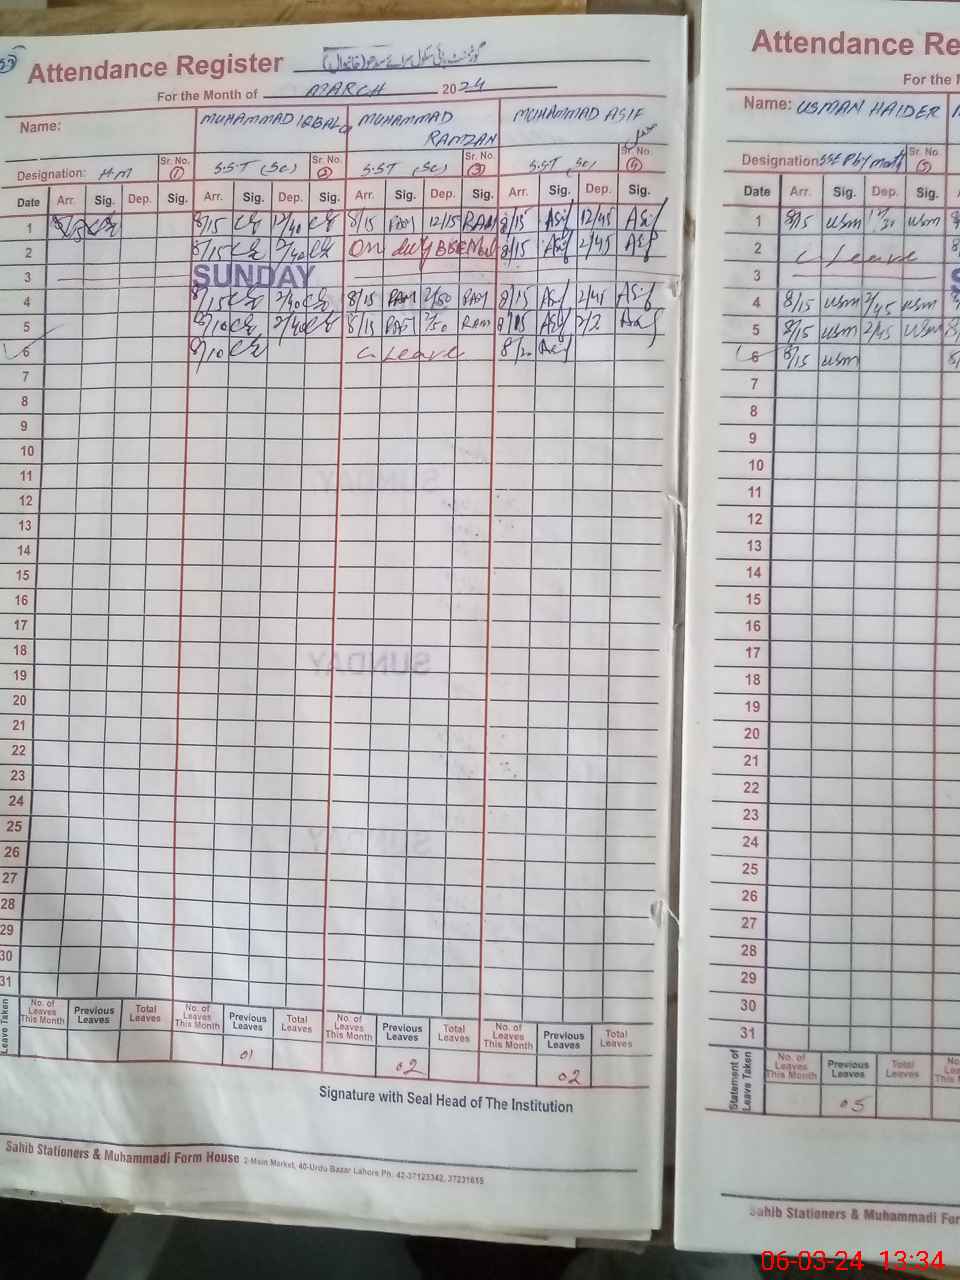 Attendance Register
For the Month of MARCH 2024
Name: MUHAMMAD IQBAL MUHAMMAD RAMZAN MUHAMMAD ASIF
Designation: H.M Sr. No. 1 S.S.T (Sc) Sr. No. 2 S.S.T (Sc) Sr. No. 3 S.S.T (Sc) Sr. No. 4
Date Arr. Sig. Dep. Sig. Arr. Sig. Dep. Sig. Arr. Sig. Dep. Sig. Arr. Sig. Dep. Sig.
1 8/15 12/40 8/15 RAM 12/15 RAM 8/15 Asif 12/45 Asif
2 8/15 2/40 On duty 8/15 Asif 2/45 Asif
3 SUNDAY
4 8/15 2/40 8/15 RAM 2/50 RAM 8/15 Asif 2/45 Asif
5 8/10 2/40 8/15 RAM 2/50 RAM 8/15 Asif Asif
6 8/10 C-Leave Asif
7
8
9
10
11
12
13
14
15
16
17
18
19
20
21
22
23
24
25
26
27
28
29
30
31
Leave Taken No. of Leaves This Month Previous Leaves Total Leaves No. of Leaves This Month Previous Leaves Total Leaves No. of Leaves This Month Previous Leaves Total Leaves No. of Leaves This Month Previous Leaves Total Leaves
01 02 02
Signature with Seal Head of The Institution
Sahib Stationers & Muhammadi Form House 2-Main Market, 40-Urdu Bazar Lahore Ph. 42-37123342, 37231615
Attendance Re
For the
Name: USMAN HAIDER
Designation Sr. No. 5
Date Arr. Sig. Dep. Sig.
1 8/15 usm usm
2 C-Leave
3
4 8/15 usm 2/45 usm
5 8/15 usm 2/45 usm
6 8/15 usm
7
8
9
10
11
12
13
14
15
16
17
18
19
20
21
22
23
24
25
26
27
28
29
30
31
Statement of Leave Taken No. of Leaves This Month Previous Leaves Total Leaves
05
Sahib Stationers & Muhammadi For
06-03-24 13:34